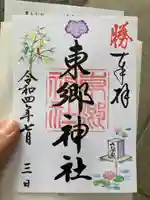 勝
奉拝
東郷神社
令和四年七月
三日